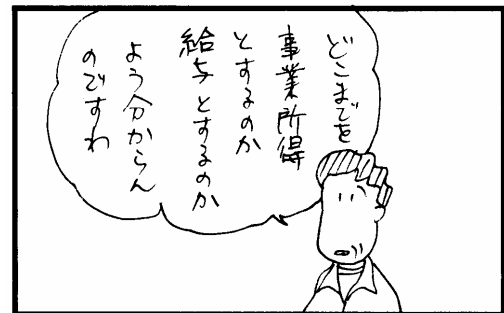 どこまでを
事業所得
とするのか
給与とするのか
よう分からん
のですわ